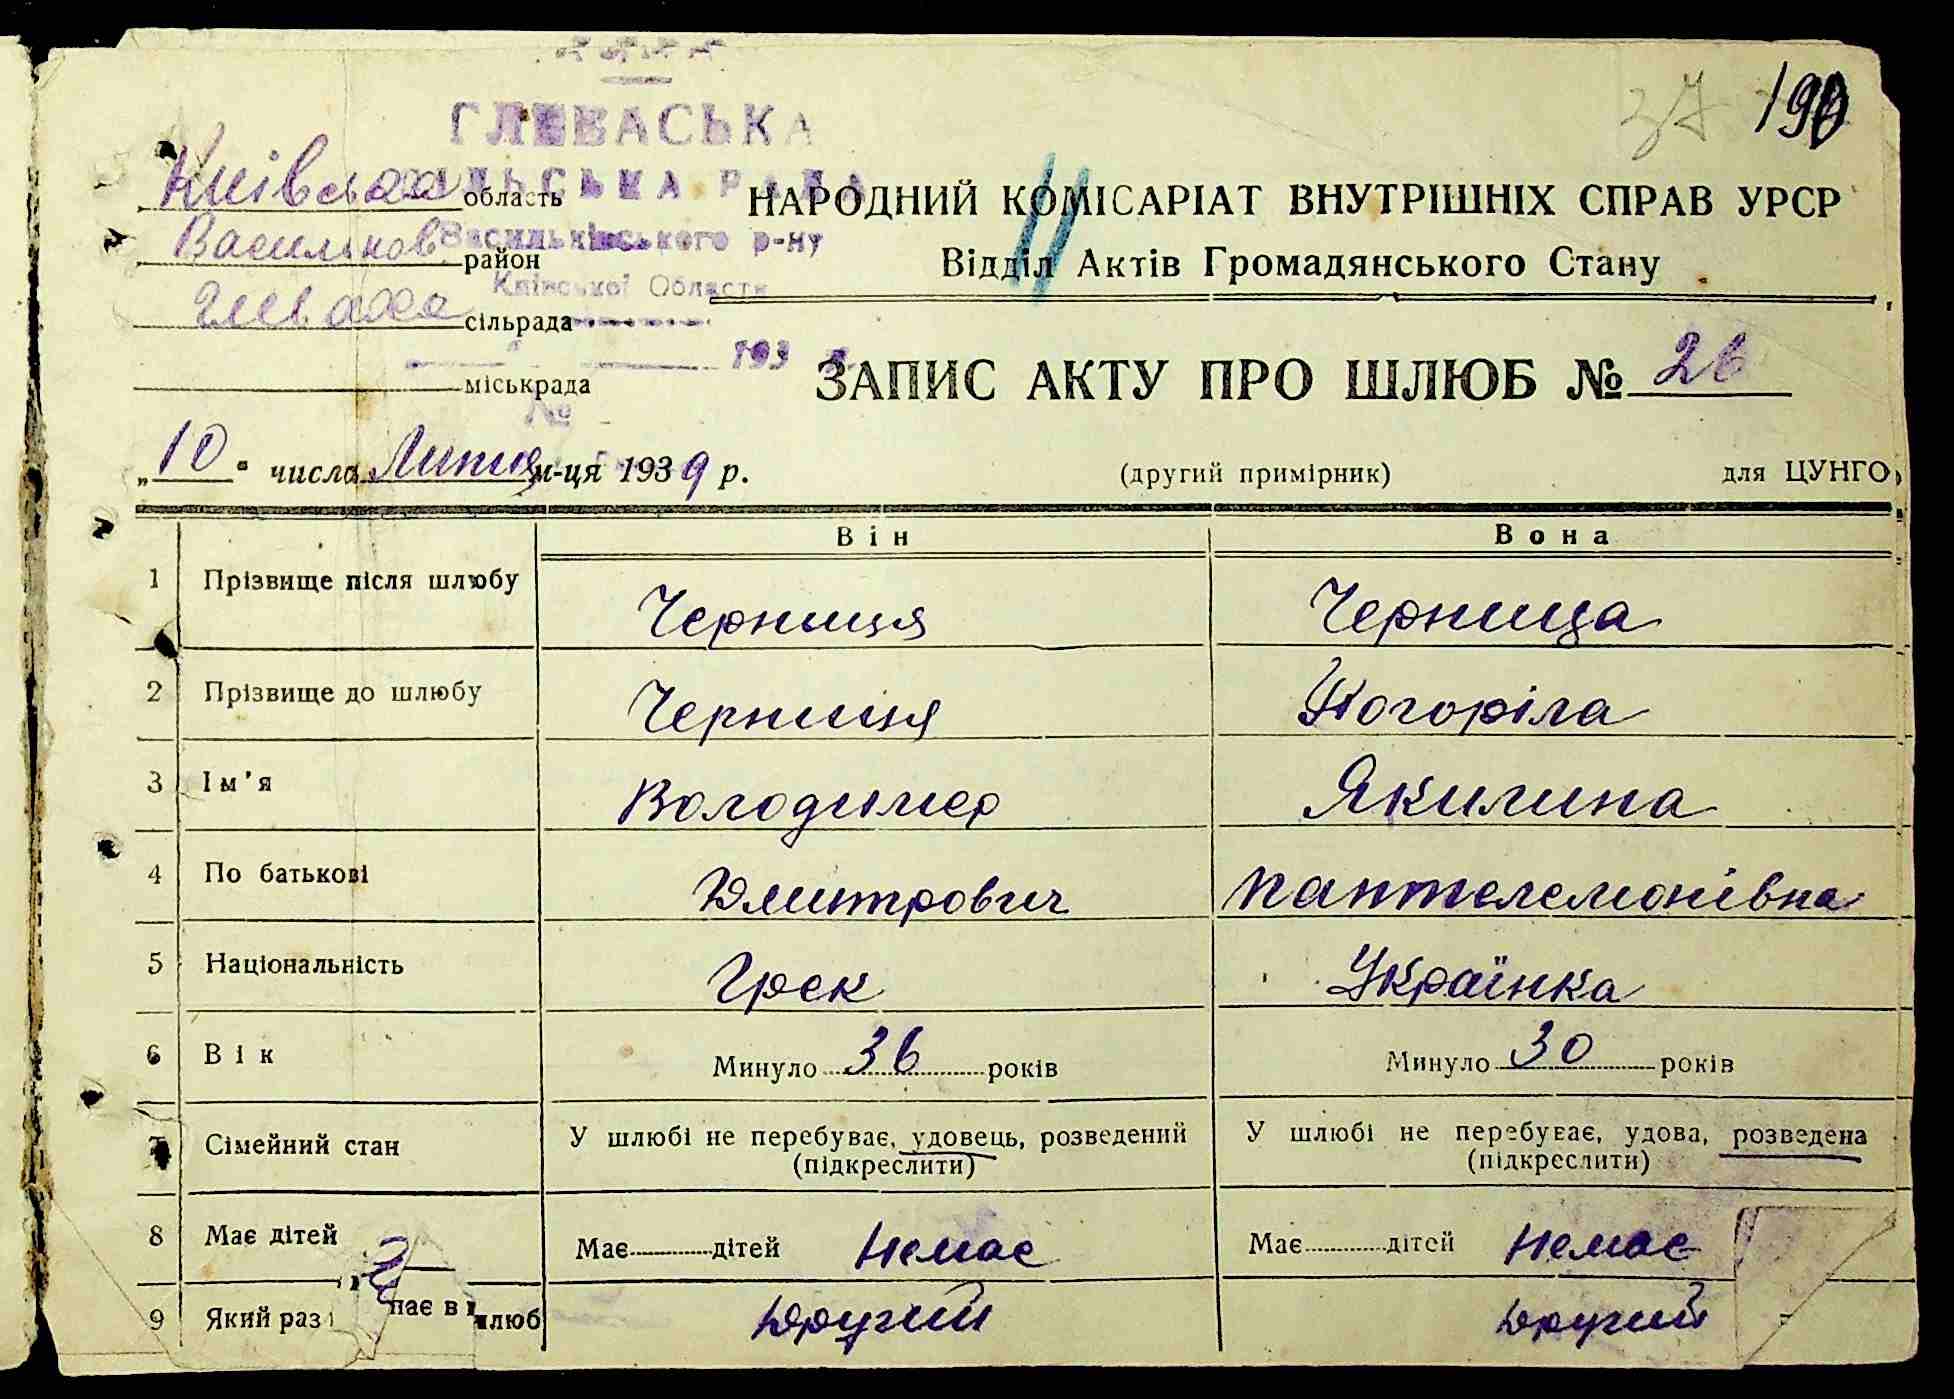 190
37
ГЛЕВАСЬКА
СІЛЬСЬКА РАДА
Васильківського р-ну
Київської Області
193
№
Київська область
Васильков. район
Глеваха сільрада
міськрада
НАРОДНИЙ КОМІСАРІАТ ВНУТРІШНІХ СПРАВ УРСР
Відділ Актів Громадянського Стану
ЗАПИС АКТУ ПРО ШЛЮБ № 26
„10" числа Липня м-ця 1939 р.
(другий примірник) для ЦУНГО
Він Вона
1 Прізвище після шлюбу Черниця Черница
2 Прізвище до шлюбу Черниця Погоріла
3 Ім'я Володимер Якилина
4 По батькові Дмитрович Пантелемонівна
5 Національність Грек Українка
6 Вік Минуло 36 років Минуло 30 років
7 Сімейний стан У шлюбі не перебуває, удовець, розведений (підкреслити) У шлюбі не перебуває, удова, розведена (підкреслити)
8 Має дітей Має дітей Немає Має дітей Немає
9 Який раз пає в шлюб Другий Другий